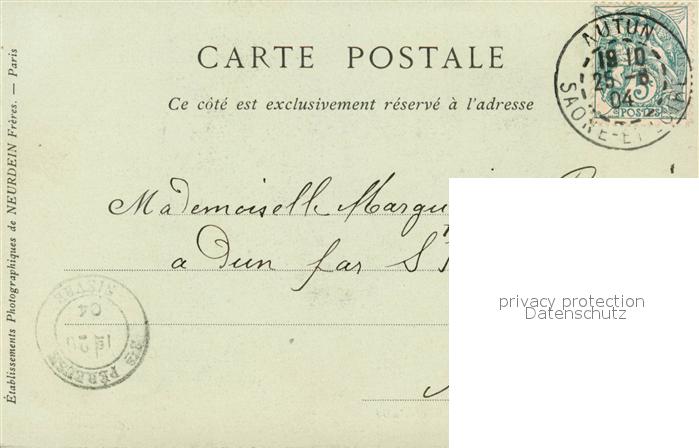 CARTE POSTALE
Ce côté est exclusivement réservé à l'adresse
Établissements Photographiques de NEURDEIN Frères. — Paris
AUTUN
19 10
25 -6
04
SAONE-ET-
5
POSTES
Mademoiselle
a Dun par S
privacy protection
Datenschutz
PÉREUSE
04
NIÈVRE